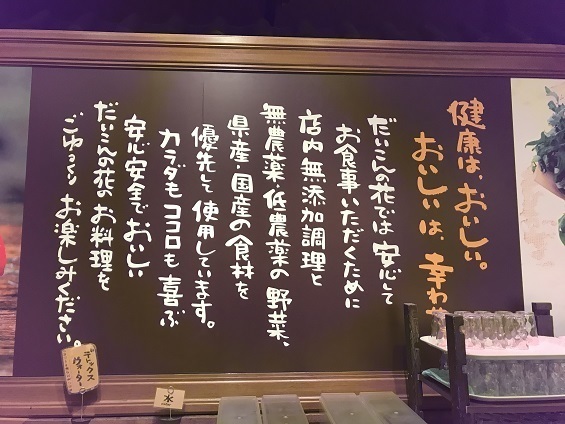 健康は、おいしい。
おいしいは、幸わせ
だいこんの花では 安心して
お食事いただくために
店内無添加調理と
無農薬・低農薬の 野菜、
県産・国産の食材を
優先して 使用しています。
カラダも ココロも 喜ぶ
安心安全で おいしい
だいこんの花の お料理を
ごゆっくり お楽しみください。
デトックス
ウォーター
水